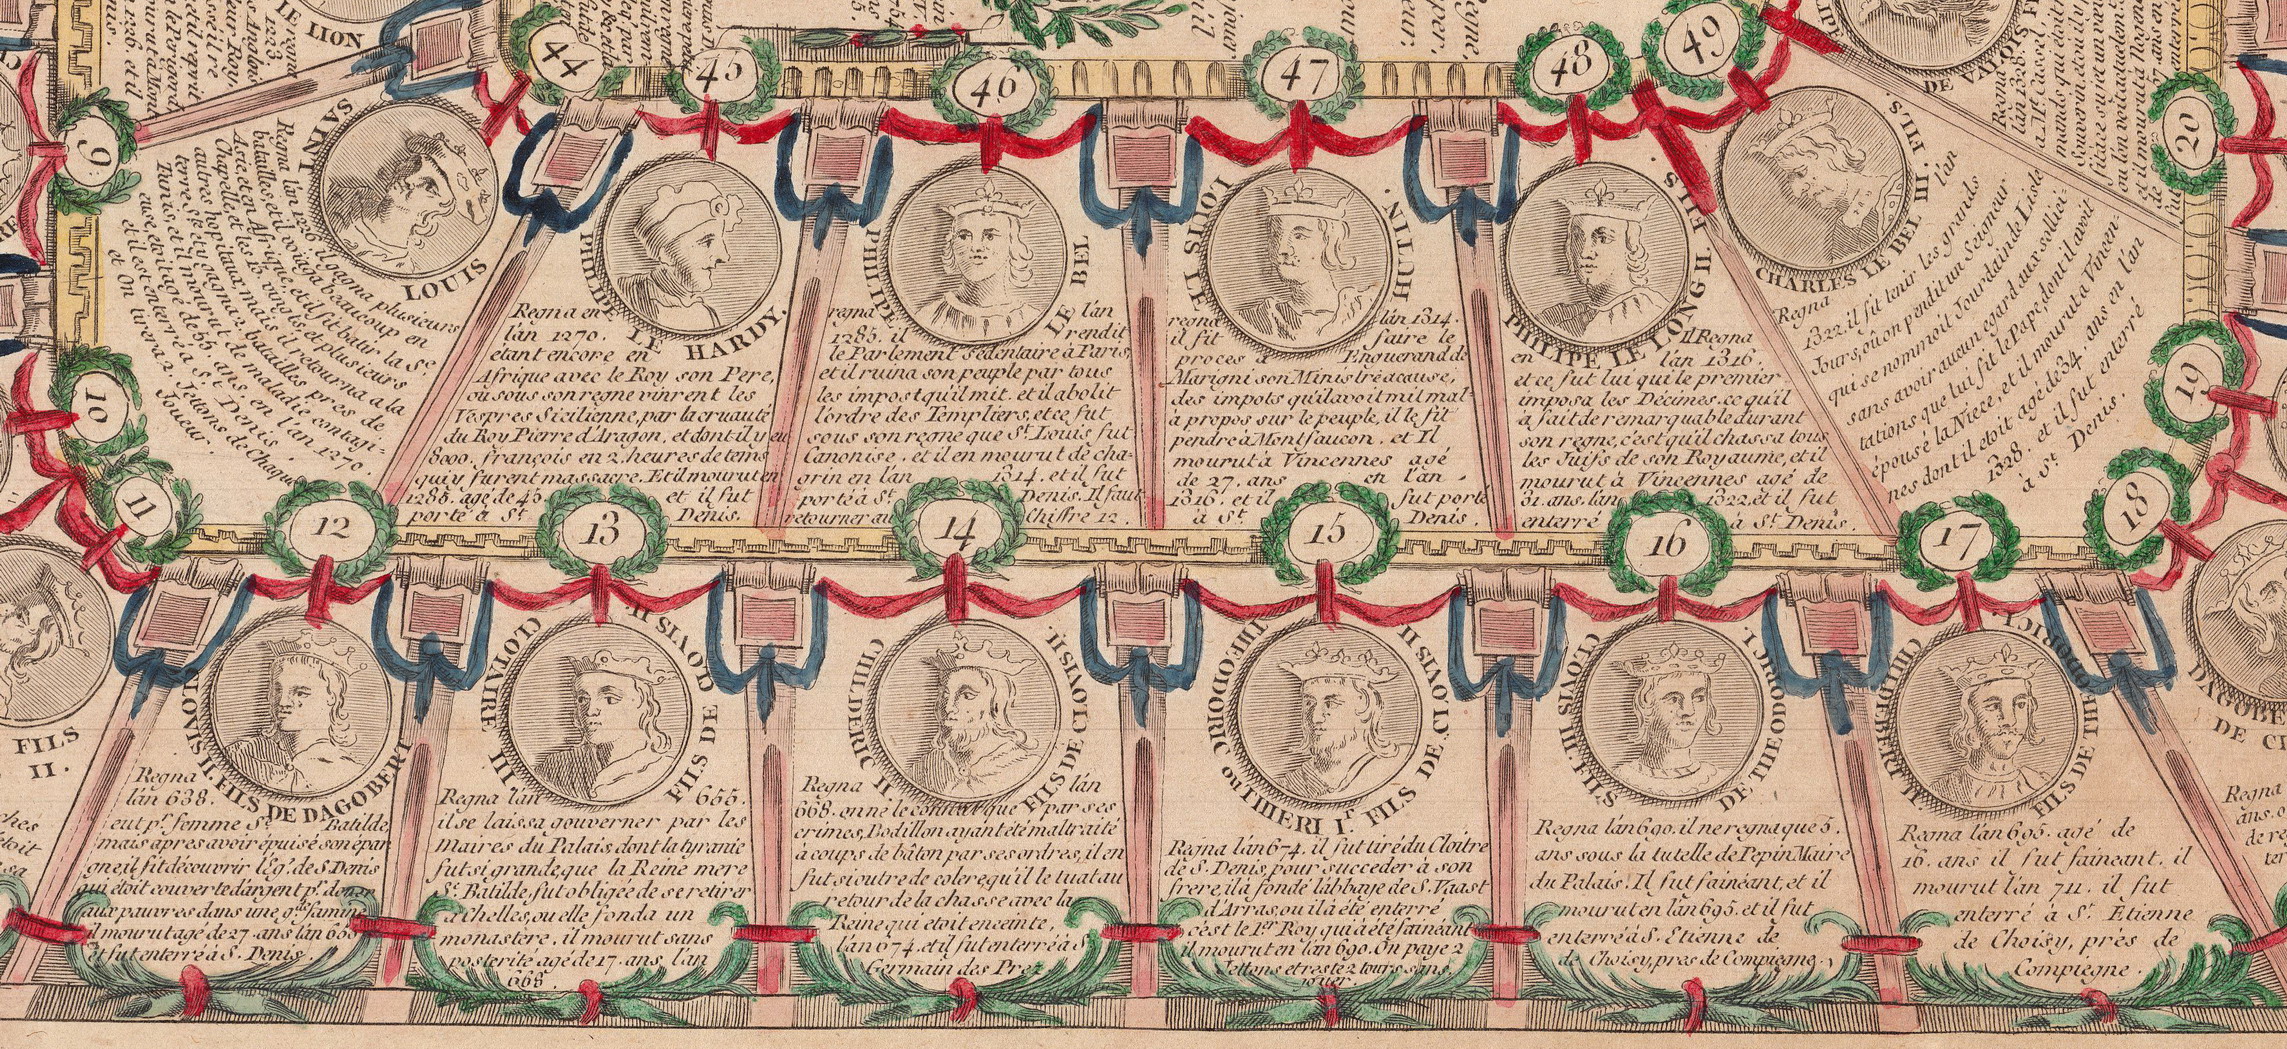 LE LION
44
45
46
47
48
49
9
20
SAINT
LOUIS
Regna l'an 1226. il gagna plusieurs
batailles et il voiagea beaucoup en
Asie, et en Afrique, et il fit batir la Ste
Chapelle, et les 15. vingts, et plusieurs
autres hopitaux, mais il retourna a la
terre Ste ou il gagna 2. batailles pres de
Tunis, et il mourut de maladie contagi-
euse, etant agé de 55 ans, en l'an 1270.
et il est enterré a St. Denis.
On tirera 2. Jettons de Chaque
Joueur.
PHILIPE LE HARDY.
Regna en
l'an 1270.
etant encore en
Afrique avec le Roy son Pere,
où sous son regne vinrent les
Vespres Sicilienne, par la cruauté
du Roy Pierre d'Aragon, et dont il y eu
8000. françois en 2. heures de tems
qui y furent massacre. Et il mourut en
1285. agé de 45. et il fut
porté à St. Denis.
PHILIPE LE BEL
regna l'an
1285. il rendit
le Parlement sédentaire à Paris,
et il ruina son peuple par tous
les impost qu'il mit. et il abolit
l'ordre des Templiers, et ce fut
sous son regne que St. Louis fut
Canonise. et il en mourut de cha-
grin en l'an 1314. et il fut
porté à St. Denis. Il faut
retourner au Chiffre 12.
LOUIS LE HUTTIN.
regna l'an 1314.
il fit faire le
proces à Enguerand de
Marigni son Ministre acause,
des impots qu'il avoit mil mal-
à propos sur le peuple, il le fit
pendre à Montfaucon. et Il
mourut à Vincennes agé
de 27. ans en l'an.
1316. et il fut porté
à St. Denis.
PHILIPE LE LONG II FILS.
Il Regna
en l'an 1316.
et ce fut lui qui le premier
imposa les Décimes. ce qu'il
à fait de remarquable durant
son regne, c'est qu'il chassa tous
les Juifs de son Royaume, et il
mourut à Vincennes agé de
31. ans. l'an 1322. et il fut
enterré à St. Denis.
CHARLES LE BEL III. FILS.
Regna l'an
1322. il fit tenir les grands
Jours, où on pendit un Seigneur
qui se nommoit Jourdain de Lisle
sans avoir aucun egard aux sollici-
tations que lui fit le Pape, dont il avoit
épousé la Niece, et il mourut a Vincen-
nes dont il etoit agé de 34. ans en l'an
1328. et il fut enterré
à St. Denis.
DE VALOIS
10
11
12
13
14
15
16
17
18
19
FILS
II.
CLOVIS II. FILS DE DAGOBERT
Regna
l'an 638.
eut pr. femme Ste. Batilde
mais apres avoir épuisé son épar
gne, il fit découvrir l'égl. de S. Denis
qui étoit couverte d'argent pr. doner
aux pauvres dans une gde. famine
il mourut agé de 27. ans l'an 655
et fut enterré à S. Denis.
CLOTAIRE III FILS DE CLOVIS II.
Regna l'an 655.
il se laissa gouverner par les
maires du Palais dont la tyranie
fut si grande, que la Reine mere
Ste. Batilde, fut obligée de se retirer
a Chelles, ou elle fonda un
monastère. il mourut sans
posterité agé de 17. ans, l'an
668.
CHILDERIC II FILS DE CLOVIS II.
Regna l'an
668. on ne le connut que par ses
crimes, Bodillon ayant été maltraité
à coups de bâton par ses ordres, il en
fut si outre de colere, qu'il le tua au
retour de la chasse avec la
Reine qui étoit enseinte,
l'an 674. et il fut enterré à S.
Germain des Prez
THEODORIC ou THIERI Ir. FILS DE CLOVIS II
Regna l'an 674. il fut tiré du Cloître
de S. Denis, pour succeder à son
frere, il à fondé l'abbaye de S. Vaast
d'Arras, ou il à été enterré
c'est le 1er Roy qui a été faineant
il mourut en l'an 690. On paye 2
Jettons et reste 2 tours sans
jouer.
CLOVIS III. FILS DE THEODORIC I.
Regna l'an 690. il ne regna que 5.
ans sous la tutelle de Pepin Maire
du Palais. Il fut fainéant, et il
mourut en l'an 695. et il fut
enterré à S. Etienne de
de Choisy, près de Compiegne.
CHILDEBERT II FILS DE THEODORIC I.
Regna l'an 695. agé de
16. ans il fut faineant. il
mourut l'an 711. il fut
enterré à St. Etienne
de Choisy, près de
Compiegne.
DAGOBE
DE
Regna